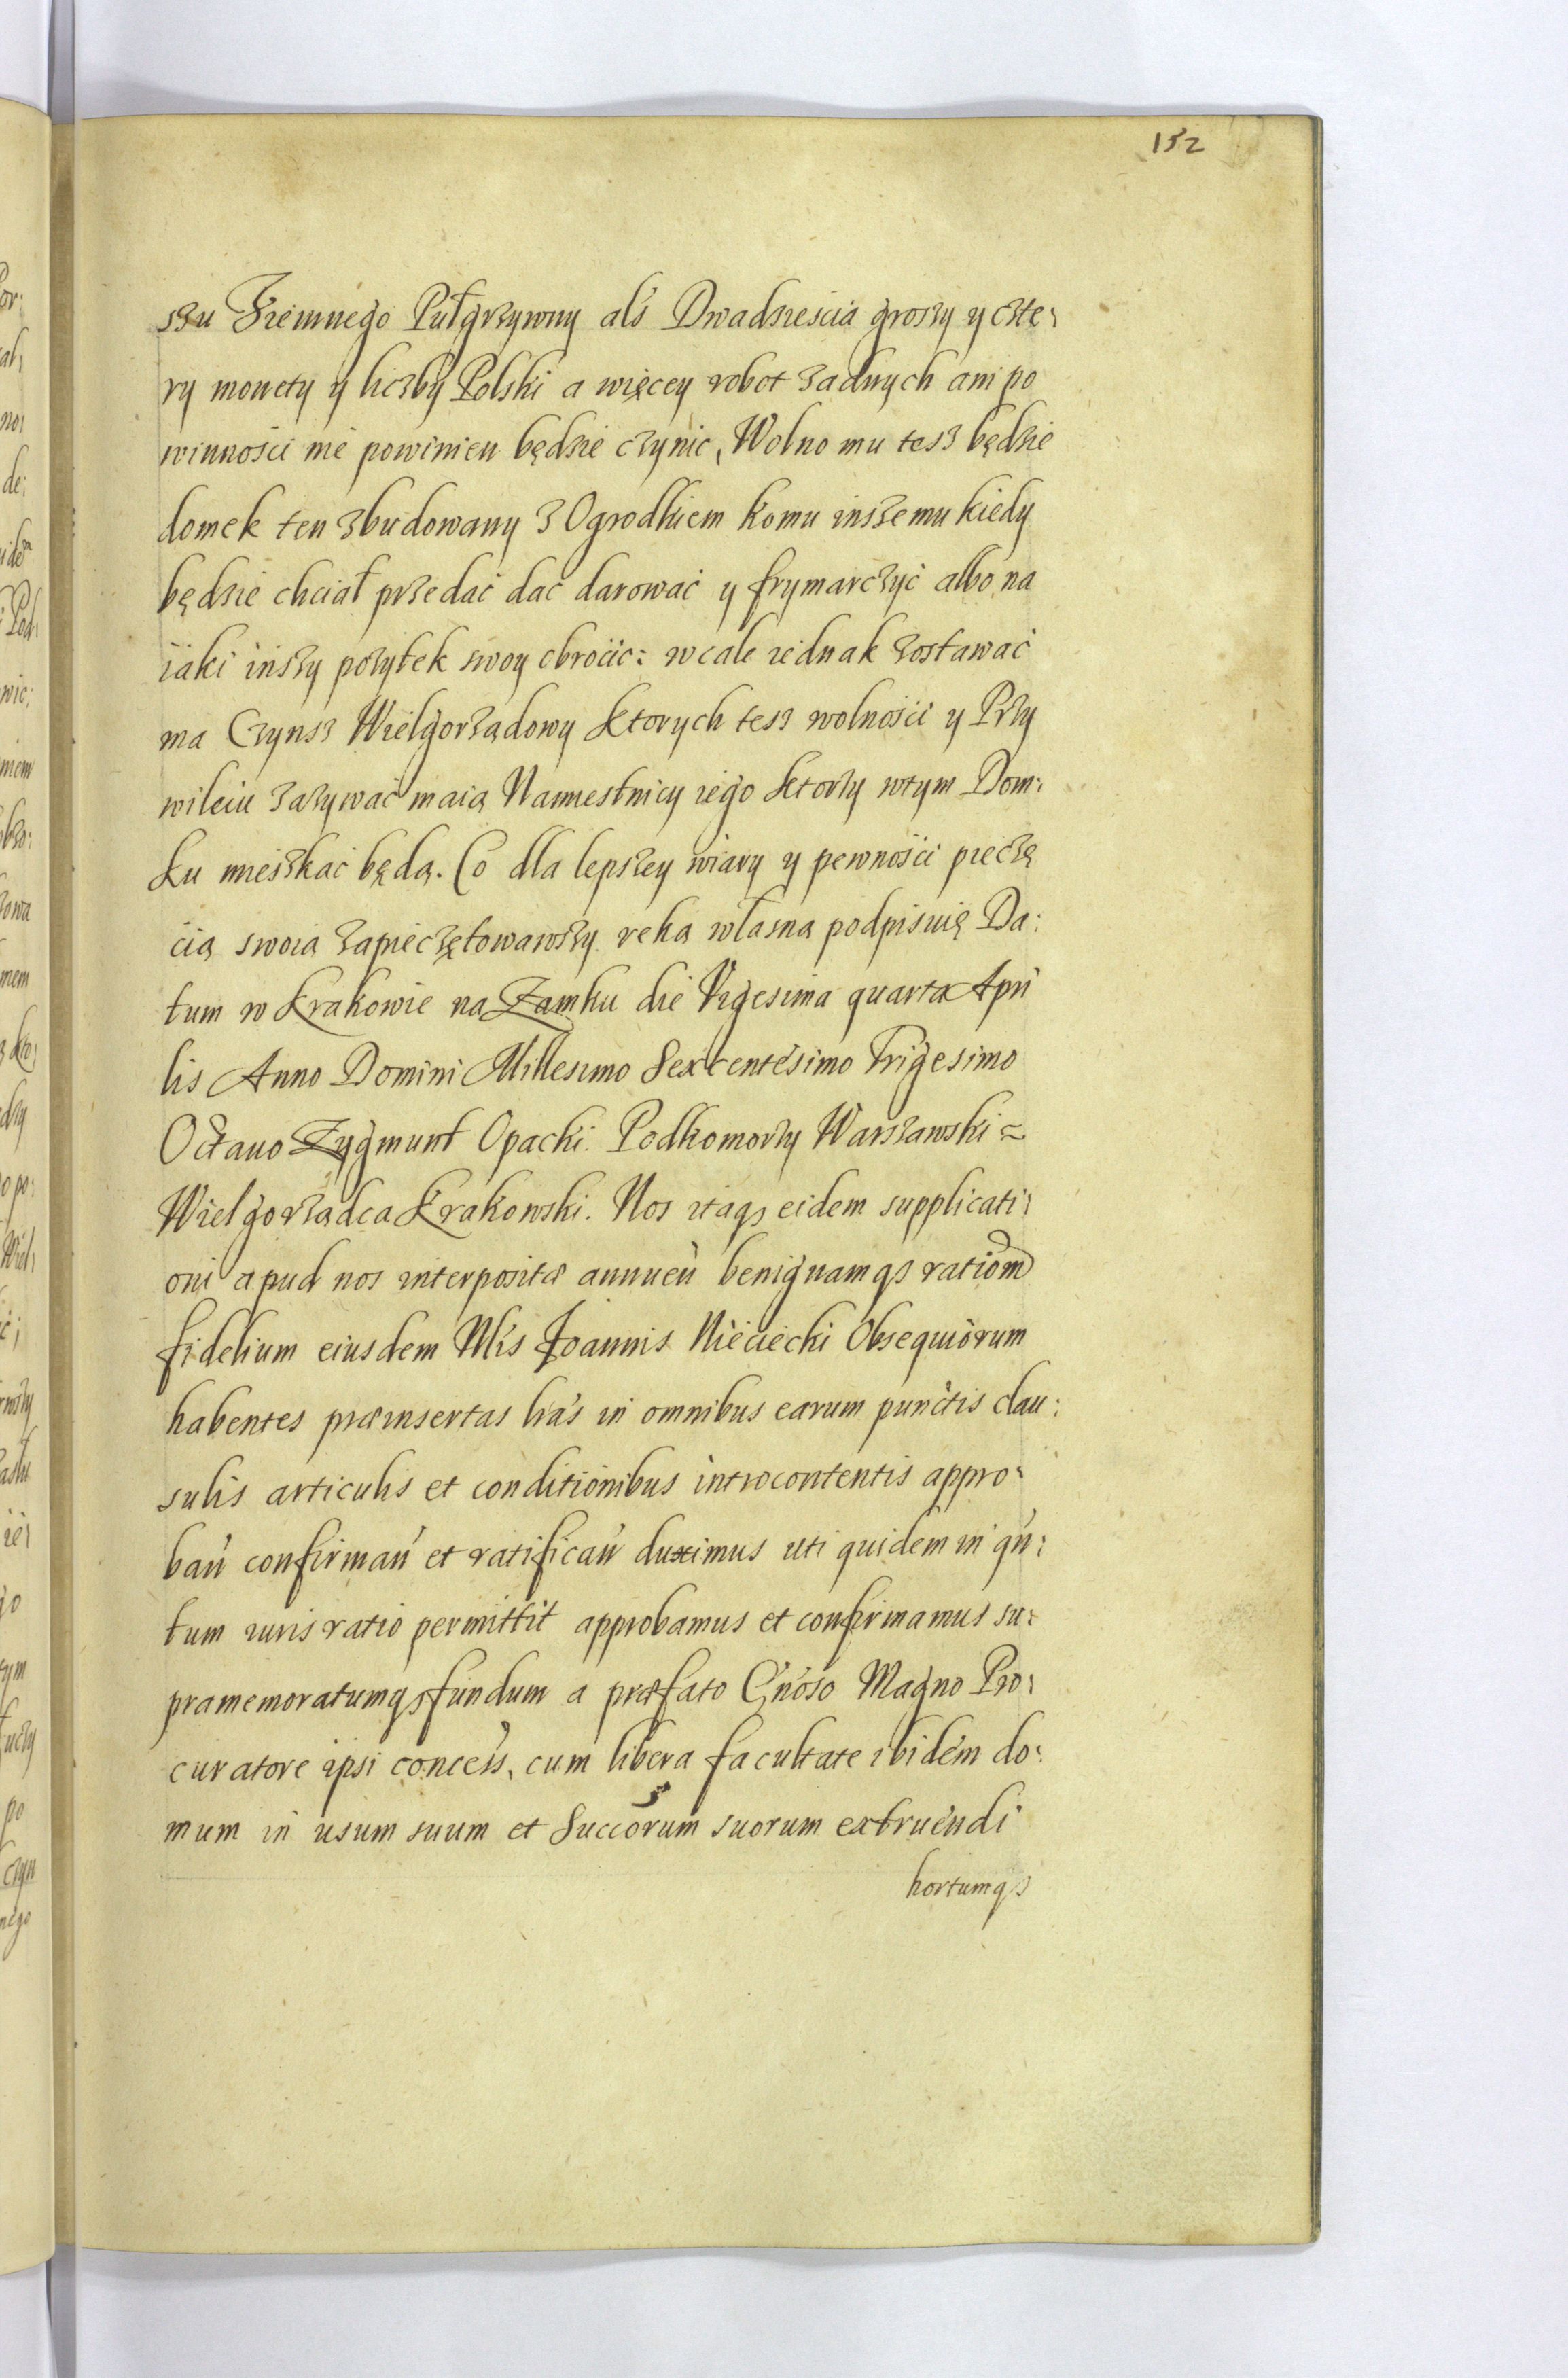 152
szu Ziemnego Pułgrzywny als Dwadziescia groszy y czte:
ry monety y liczby Polski a więcey robot zadnych ani po
winnosci nie powinien będzie czynic, Wolno mu tesz będzie
domek ten zbudowany z Ogrodkiem komu inszemu kiedy
będzie chciał przedać dać darować y frymarczyć albo na
iaki inszy pozytek swoy obrocic: wcale iednak zostawać
ma Czynsz Wielgorządowy ktorych tesz wolnosci y Przy
wileiu zazywać maią Namiestnicy iego ktorzy wtym Dom:
ku mieszkać będą. Co dla lepszey wiary y pewnosci pieczę
cią swoią zapieczętowawszy ręką własną podpisuię Da:
tum w Krakowie na Zamku die Vigesima quarta Apri
lis Anno Domini Millesimo Sexcentesimo Trigesimo
Octauo Zygmunt Opacki. Podkomorzy Warszawski =
Wielgorządca Krakowski. Nos itaqз eidem supplicati:
oni apud nos interpositæ annuen benignamqз rationem
fidelium eiusdem Nlis Joannis Nieciecki Obsequiorum
habentes præinsertas lras in omnibus earum punctis clau:
sulis articulis et conditionibus introcontentis appro:
ban confirman et ratifican duximus uti quidem in qn:
tum iuris ratio permittit approbamus et confirmamus su:
pramemoratumqз fundum a præfato Gnoso Magno Pro:
curatore ipsi concess, cum libera facultate ibidem do:
mum in usum suum et Succorum suorum extruendi
hortumqз